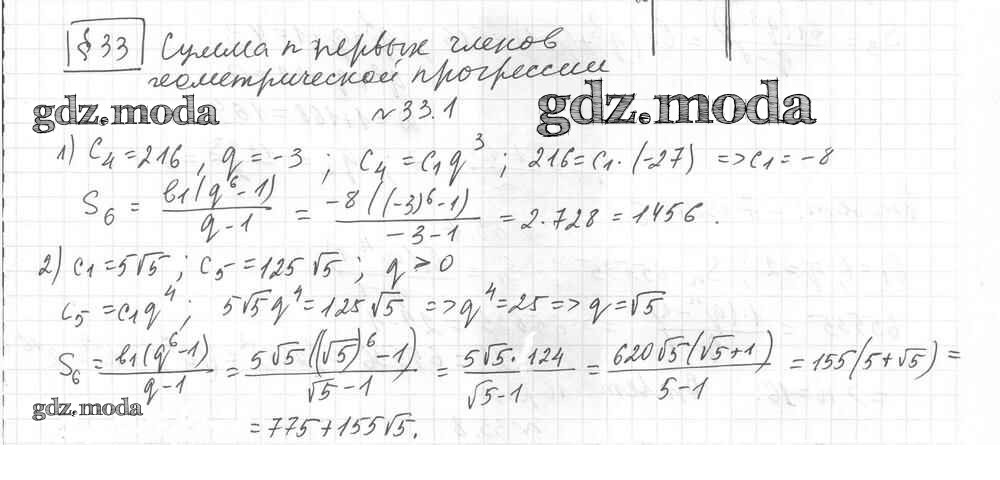 §33 Сумма n первых членов
геометрической прогрессии
gdz.moda gdz.moda
№33.1
1) c₄=216, q=-3; c₄=c₁q³; 216=c₁·(-27) => c₁=-8
S₆ = в₁(q⁶-1)/(q-1) = -8((-3)⁶-1)/(-3-1) = 2·728 = 1456.
2) c₁=5√5; c₅=125√5; q>0
c₅=c₁q⁴; 5√5q⁴=125√5 => q⁴=25 => q=√5
S₆ = в₁(q⁶-1)/(q-1) = 5√5((√5)⁶-1)/(√5-1) = 5√5·124/(√5-1) = 620√5(√5+1)/(5-1) = 155(5+√5) =
gdz.moda
=775+155√5.